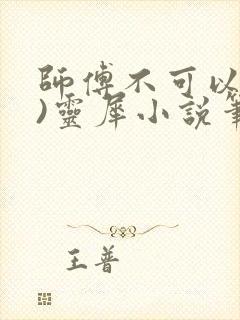 師傅不可以
)靈犀小說
王普